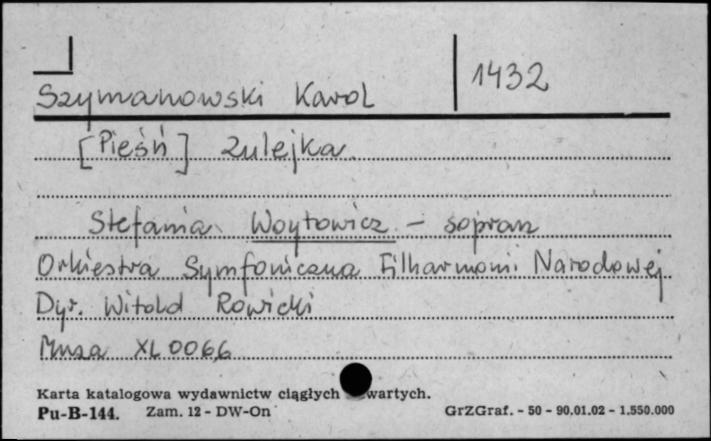 Szymanowski Karol 1432
[Pieśń] Zulejka.
Stefania Woytowicz - sopran
Orkiestra Symfoniczna Filharmonii Narodowej
Dyr. Witold Rowicki
Muza XL 0066
Karta katalogowa wydawnictw ciągłych wartych.
Pu-B-144. Zam. 12 - DW-On GrZGraf. - 50 - 90,01.02 - 1.550.000